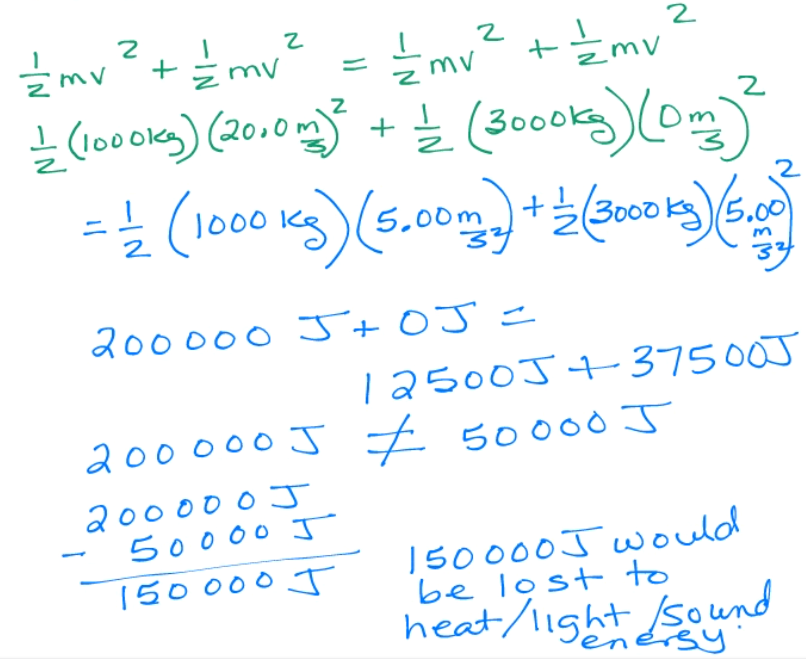 ½mv² + ½mv² = ½mv² + ½mv²
½(1000kg)(20.0 m/s)² + ½(3000kg)(0 m/s)²
= ½(1000 kg)(5.00 m/s²) + ½(3000 kg)(5.00 m/s²)²
200000 J + 0J =
12500J + 37500J
200000J ≠ 50000J
200000J
- 50000J
150000J
150000J would
be lost to
heat/light/sound
energy.